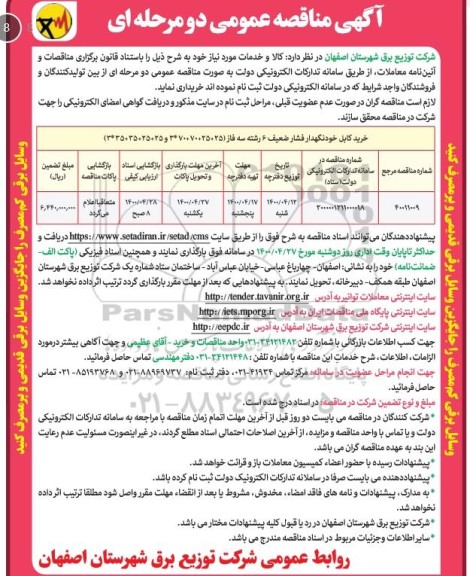 8
آگهی مناقصه عمومی دو مرحله ای
شرکت توزیع برق شهرستان اصفهان در نظر دارد: کالا و خدمات مورد نیاز خود به شرح ذیل را باستناد قانون برگزاری مناقصات و
آئین‌نامه معاملات، از طریق سامانه تدارکات الکترونیکی دولت به صورت مناقصه عمومی دو مرحله ای از بین تولیدکنندگان و
فروشندگان واجد شرایط که در سامانه الکترونیکی دولت ثبت نام نموده اند خریداری نماید.
لازم است مناقصه گران در صورت عدم عضویت قبلی، مراحل ثبت نام در سایت مذکور و دریافت گواهی امضای الکترونیکی را جهت
شرکت در مناقصه محقق سازند.
خرید کابل خودنگهدار فشار ضعیف ۶ رشته سه فاز
شماره مناقصه مرجع
شماره مناقصه در سامانه تدارکات الکترونیکی دولت (ستاد)
تاریخ توزیع دفترچه
مهلت تهیه دفترچه
آخرین مهلت بارگذاری و تحویل پاکات
بازگشایی اسناد ارزیابی کیفی
بازگشایی پاکات مناقصه
مبلغ تضمین (ریال)
۴۰۰۱۱۰۰۹
۱۴۰۰/۰۴/۱۲ شنبه
۱۴۰۰/۰۴/۱۷ پنجشنبه
۱۴۰۰/۰۴/۲۷ یکشنبه
۱۴۰۰/۰۴/۲۸ ۸ صبح
متعاقبا اعلام می‌گردد
۶,۴۴۰,۰۰۰,۰۰۰
پیشنهاددهندگان می‌توانند اسناد مناقصه به شرح فوق را از طریق سایت https://www.setadiran.ir/setad/cms دریافت و
حداکثر تا پایان وقت اداری روز دوشنبه مورخ ۱۴۰۰/۰۴/۲۷ در سامانه فوق بارگذاری نمایند و همچنین اسناد فیزیکی (پاکت الف-
ضمانت‌نامه) خود را به نشانی: اصفهان- چهارباغ عباسی- خیابان عباس آباد- ساختمان ستاد شماره یک شرکت توزیع برق شهرستان
اصفهان طبقه همکف- دبیرخانه، تحویل نمایند. به پیشنهادهایی که بعد از مهلت مقرر بارگذاری گردد ترتیب اثر داده نخواهد شد.
سایت اینترنتی معاملات توانیر به آدرس http://tender.tavanir.org.ir
سایت اینترنتی پایگاه ملی مناقصات ایران به آدرس http://iets.mporg.ir
سایت اینترنتی شرکت توزیع برق شهرستان اصفهان به آدرس http://eepdc.ir
جهت کسب اطلاعات بازرگانی با شماره تلفن ۳۴۱۲۱۴۸۲-۰۳۱ واحد مناقصات و خرید - آقای عظیمی و جهت آگاهی بیشتر در مورد
الزامات، اطلاعات، شرح خدمات این مناقصه با شماره تلفن: ۳۴۱۲۱۴۴۸-۰۳۱ دفتر مهندسی تماس حاصل فرمائید.
جهت انجام مراحل عضویت در سامانه: مرکز تماس ۴۱۹۳۴-۰۲۱، دفتر ثبت نام: ۸۸۹۶۹۷۳۷-۰۲۱ و ۸۵۱۹۳۷۶۸-۰۲۱ تماس
حاصل فرمائید.
مبلغ و نوع تضمین شرکت در مناقصه: در اسناد درج شده است.
*شرکت کنندگان در مناقصه می بایست دو روز قبل از آخرین مهلت اتمام زمان مناقصه با مراجعه به سامانه تدارکات الکترونیکی
دولت و یا تماس با واحد مناقصه و مزایده، از آخرین اصلاحات احتمالی اسناد مطلع گردند، در غیر اینصورت مسئولیت عدم رعایت
این بند به عهده مناقصه گران می باشد.
*پیشنهادات رسیده با حضور اعضاء کمیسیون معاملات باز و قرائت خواهد شد.
*پیشنهاددهنده می بایست صرفا در سامانه تدارکات الکترونیک دولت ثبت نام کرده باشد.
*به مدارک، پیشنهادات و نامه های فاقد امضاء، مخدوش، مشروط یا بعد از انقضاء مهلت مقرر واصل شود مطلقا ترتیب اثر داده
نخواهد شد.
*شرکت توزیع برق شهرستان اصفهان در رد یا قبول کلیه پیشنهادات مختار می باشد.
*سایر اطلاعات و جزئیات مربوط در اسناد مناقصه مندرج می باشد.
روابط عمومی شرکت توزیع برق شهرستان اصفهان
وسایل برقی کم‌مصرف را جایگزین وسایل برقی قدیمی و پرمصرف کنید
وسایل برقی کم‌مصرف را جایگزین وسایل برقی قدیمی و پرمصرف کنید